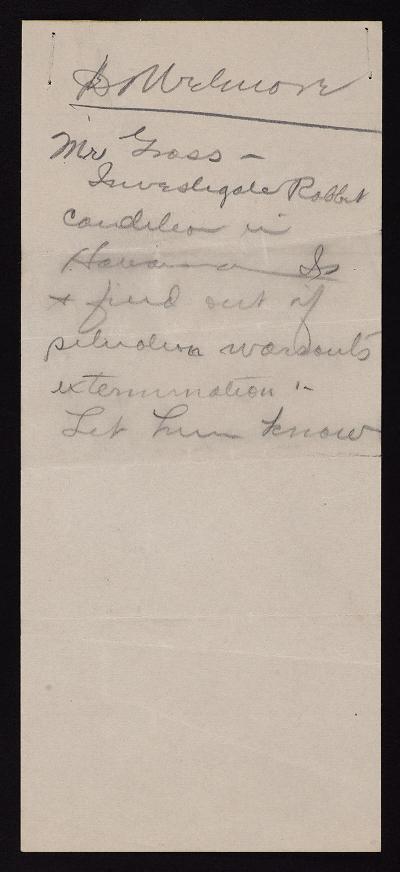 Dr Wetmore
Mr Grass -
Investigate Rabbit
condition in
Hawaiian Is
& find out if
situation warrants
extermination -
Let him know